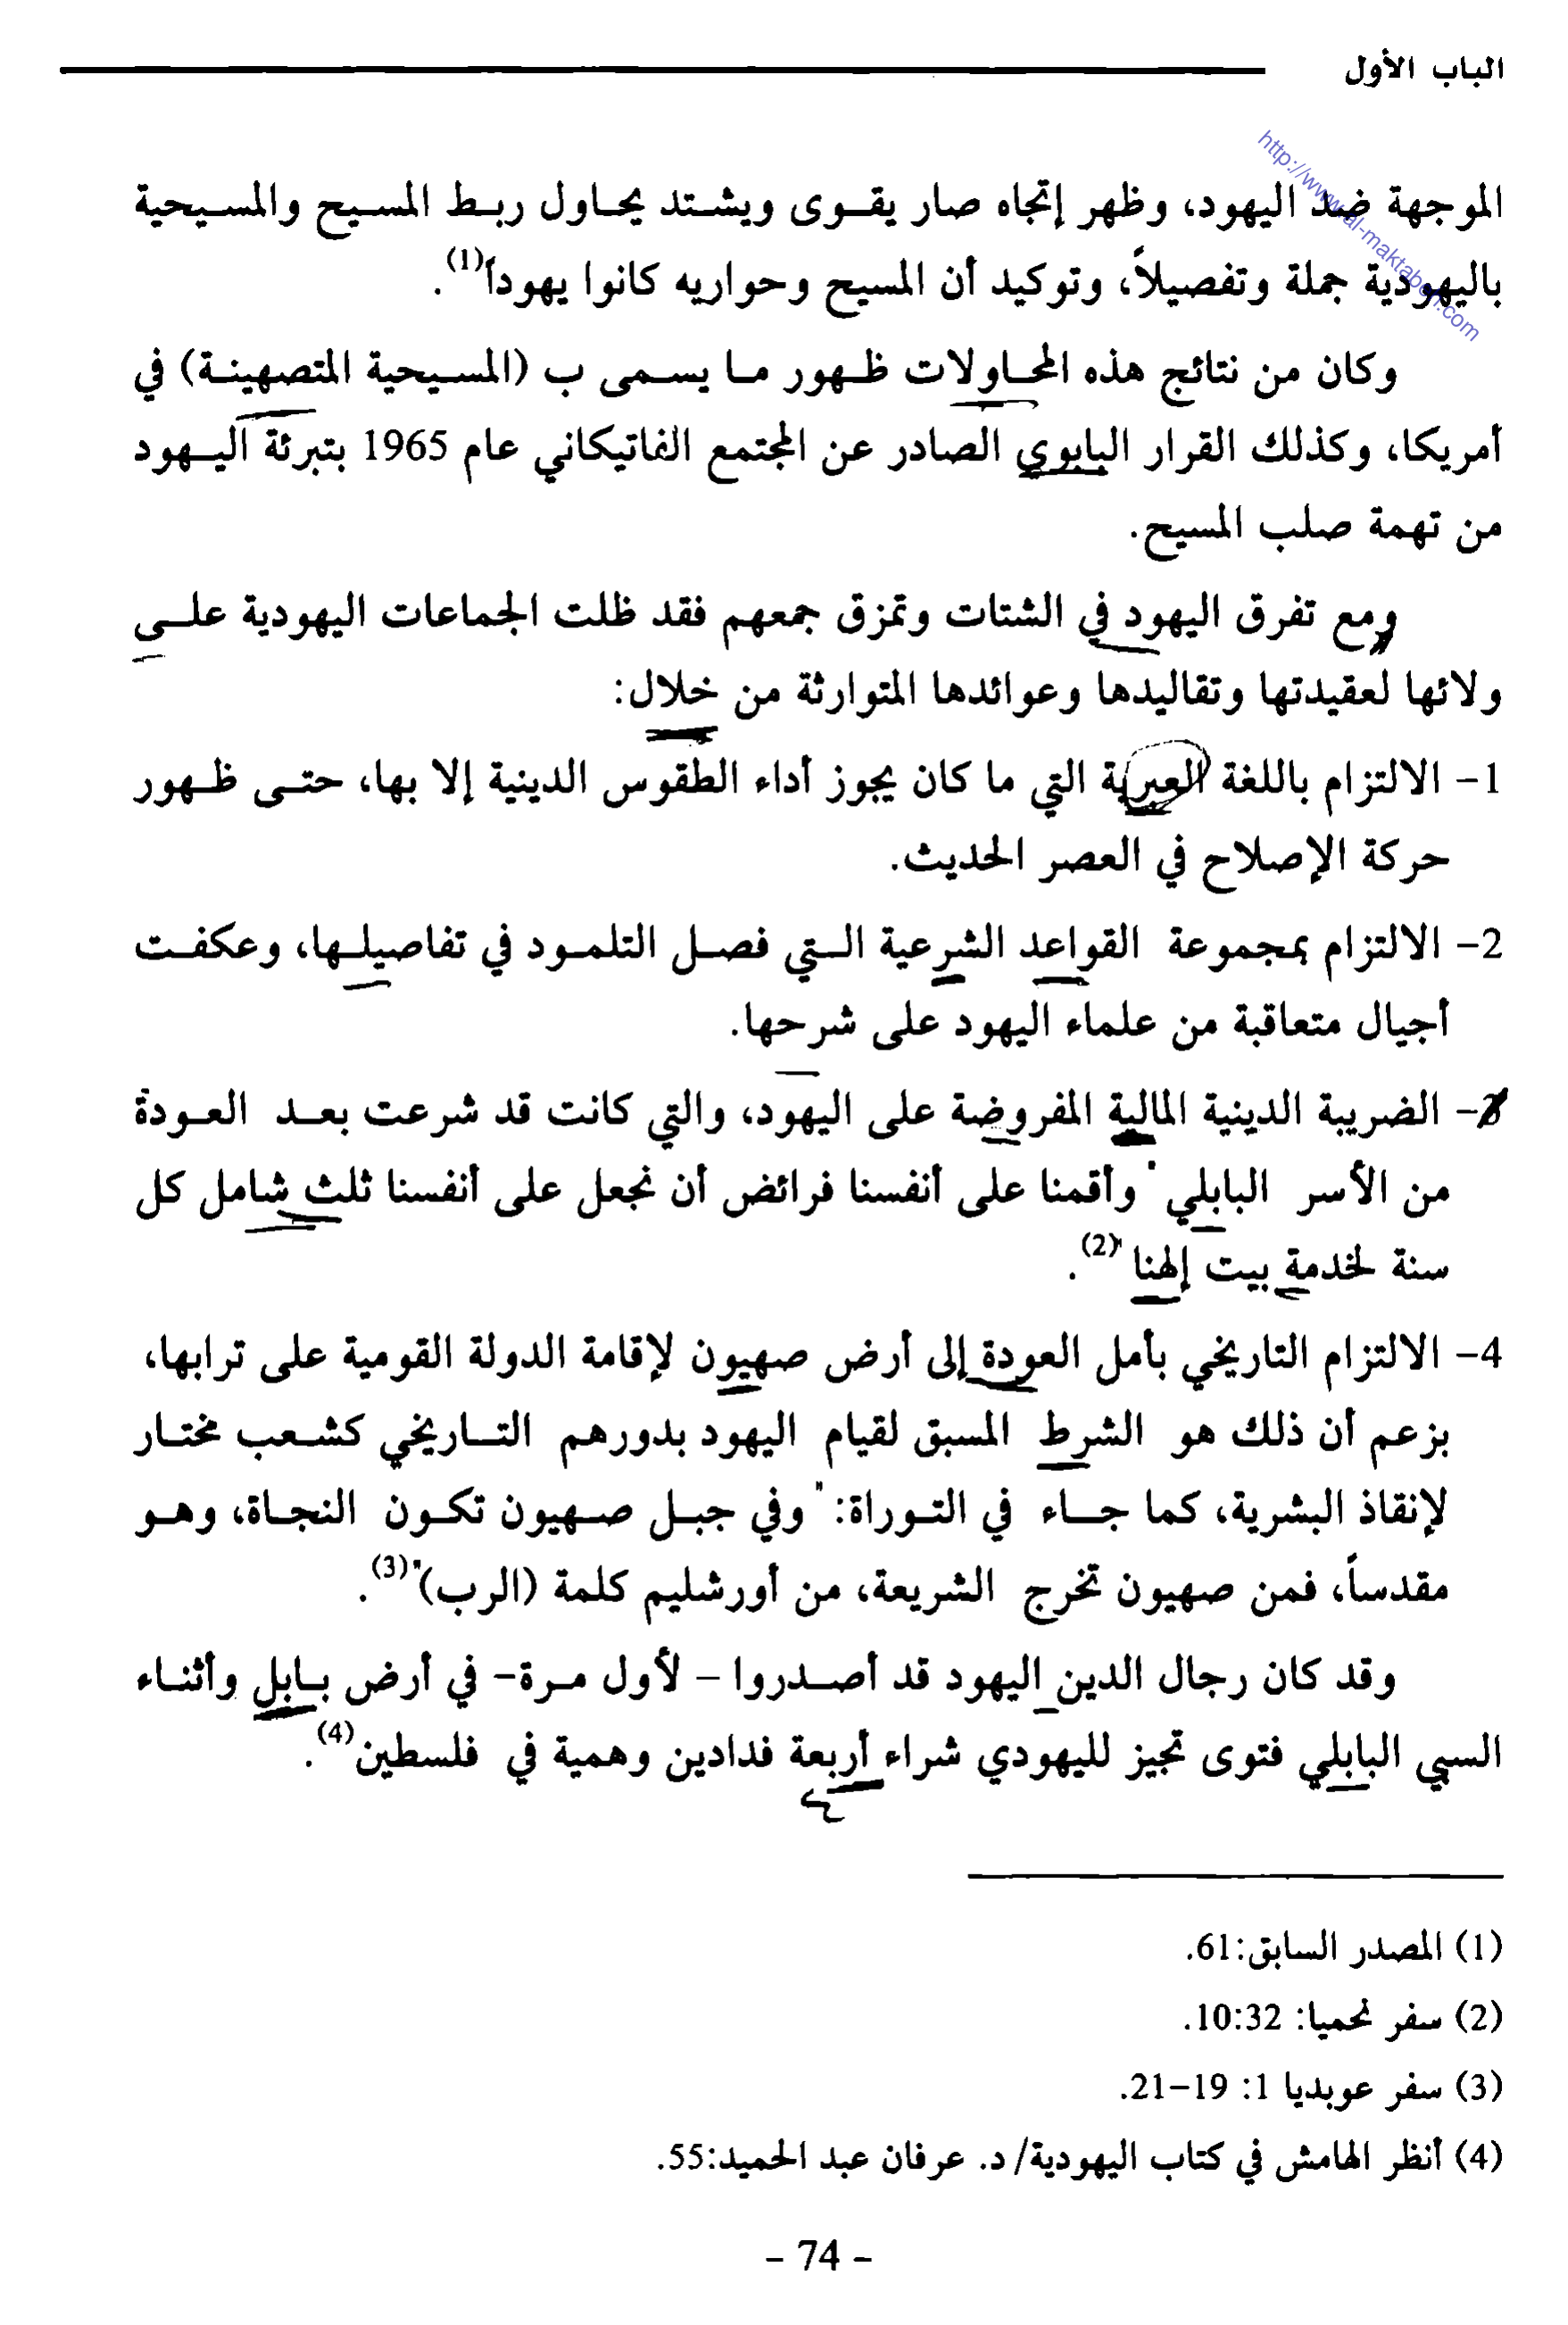 الباب الأول
http://www.al-maktabeh.com
الموجهة ضد اليهود، وظهر إتجاه صار يقوى ويشتد يحاول ربط المسيح والمسيحية
باليهودية جملة وتفصيلاً، وتوكيد أن المسيح وحواريه كانوا يهوداً(1).
وكان من نتائج هذه المحاولات ظهور ما يسمى ب (المسيحية المتصهينة) في
أمريكا، وكذلك القرار البابوي الصادر عن المجتمع الفاتيكاني عام 1965 بتبرئة اليهود
من تهمة صلب المسيح.
ومع تفرق اليهود في الشتات وتمزق جمعهم فقد ظلت الجماعات اليهودية على
ولائها لعقيدتها وتقاليدها وعوائدها المتوارثة من خلال:
1- الالتزام باللغة العبرية التي ما كان يجوز أداء الطقوس الدينية إلا بها، حتى ظهور
حركة الإصلاح في العصر الحديث.
2- الالتزام بمجموعة القواعد الشرعية التي فصل التلمود في تفاصيلها، وعكفت
أجيال متعاقبة من علماء اليهود على شرحها.
3- الضريبة الدينية المالية المفروضة على اليهود، والتي كانت قد شرعت بعد العودة
من الأسر البابلي "وأقمنا على أنفسنا فرائض أن نجعل على أنفسنا ثلث شامل كل
سنة لخدمة بيت إلهنا"(2).
4- الالتزام التاريخي بأمل العودة إلى أرض صهيون لإقامة الدولة القومية على ترابها،
بزعم أن ذلك هو الشرط المسبق لقيام اليهود بدورهم التاريخي كشعب مختار
لإنقاذ البشرية، كما جاء في التوراة: "وفي جبل صهيون تكون النجاة، وهو
مقدساً، فمن صهيون تخرج الشريعة، من أورشليم كلمة (الرب)"(3).
وقد كان رجال الدين اليهود قد أصدروا – لأول مرة- في أرض بابل وأثناء
السبي البابلي فتوى تجيز لليهودي شراء أربعة فدادين وهمية في فلسطين(4).
(1) المصدر السابق:61.
(2) سفر نحميا: 10:32.
(3) سفر عوبديا 1: 19-21.
(4) أنظر الهامش في كتاب اليهودية/ د. عرفان عبد الحميد:55.
- 74 -